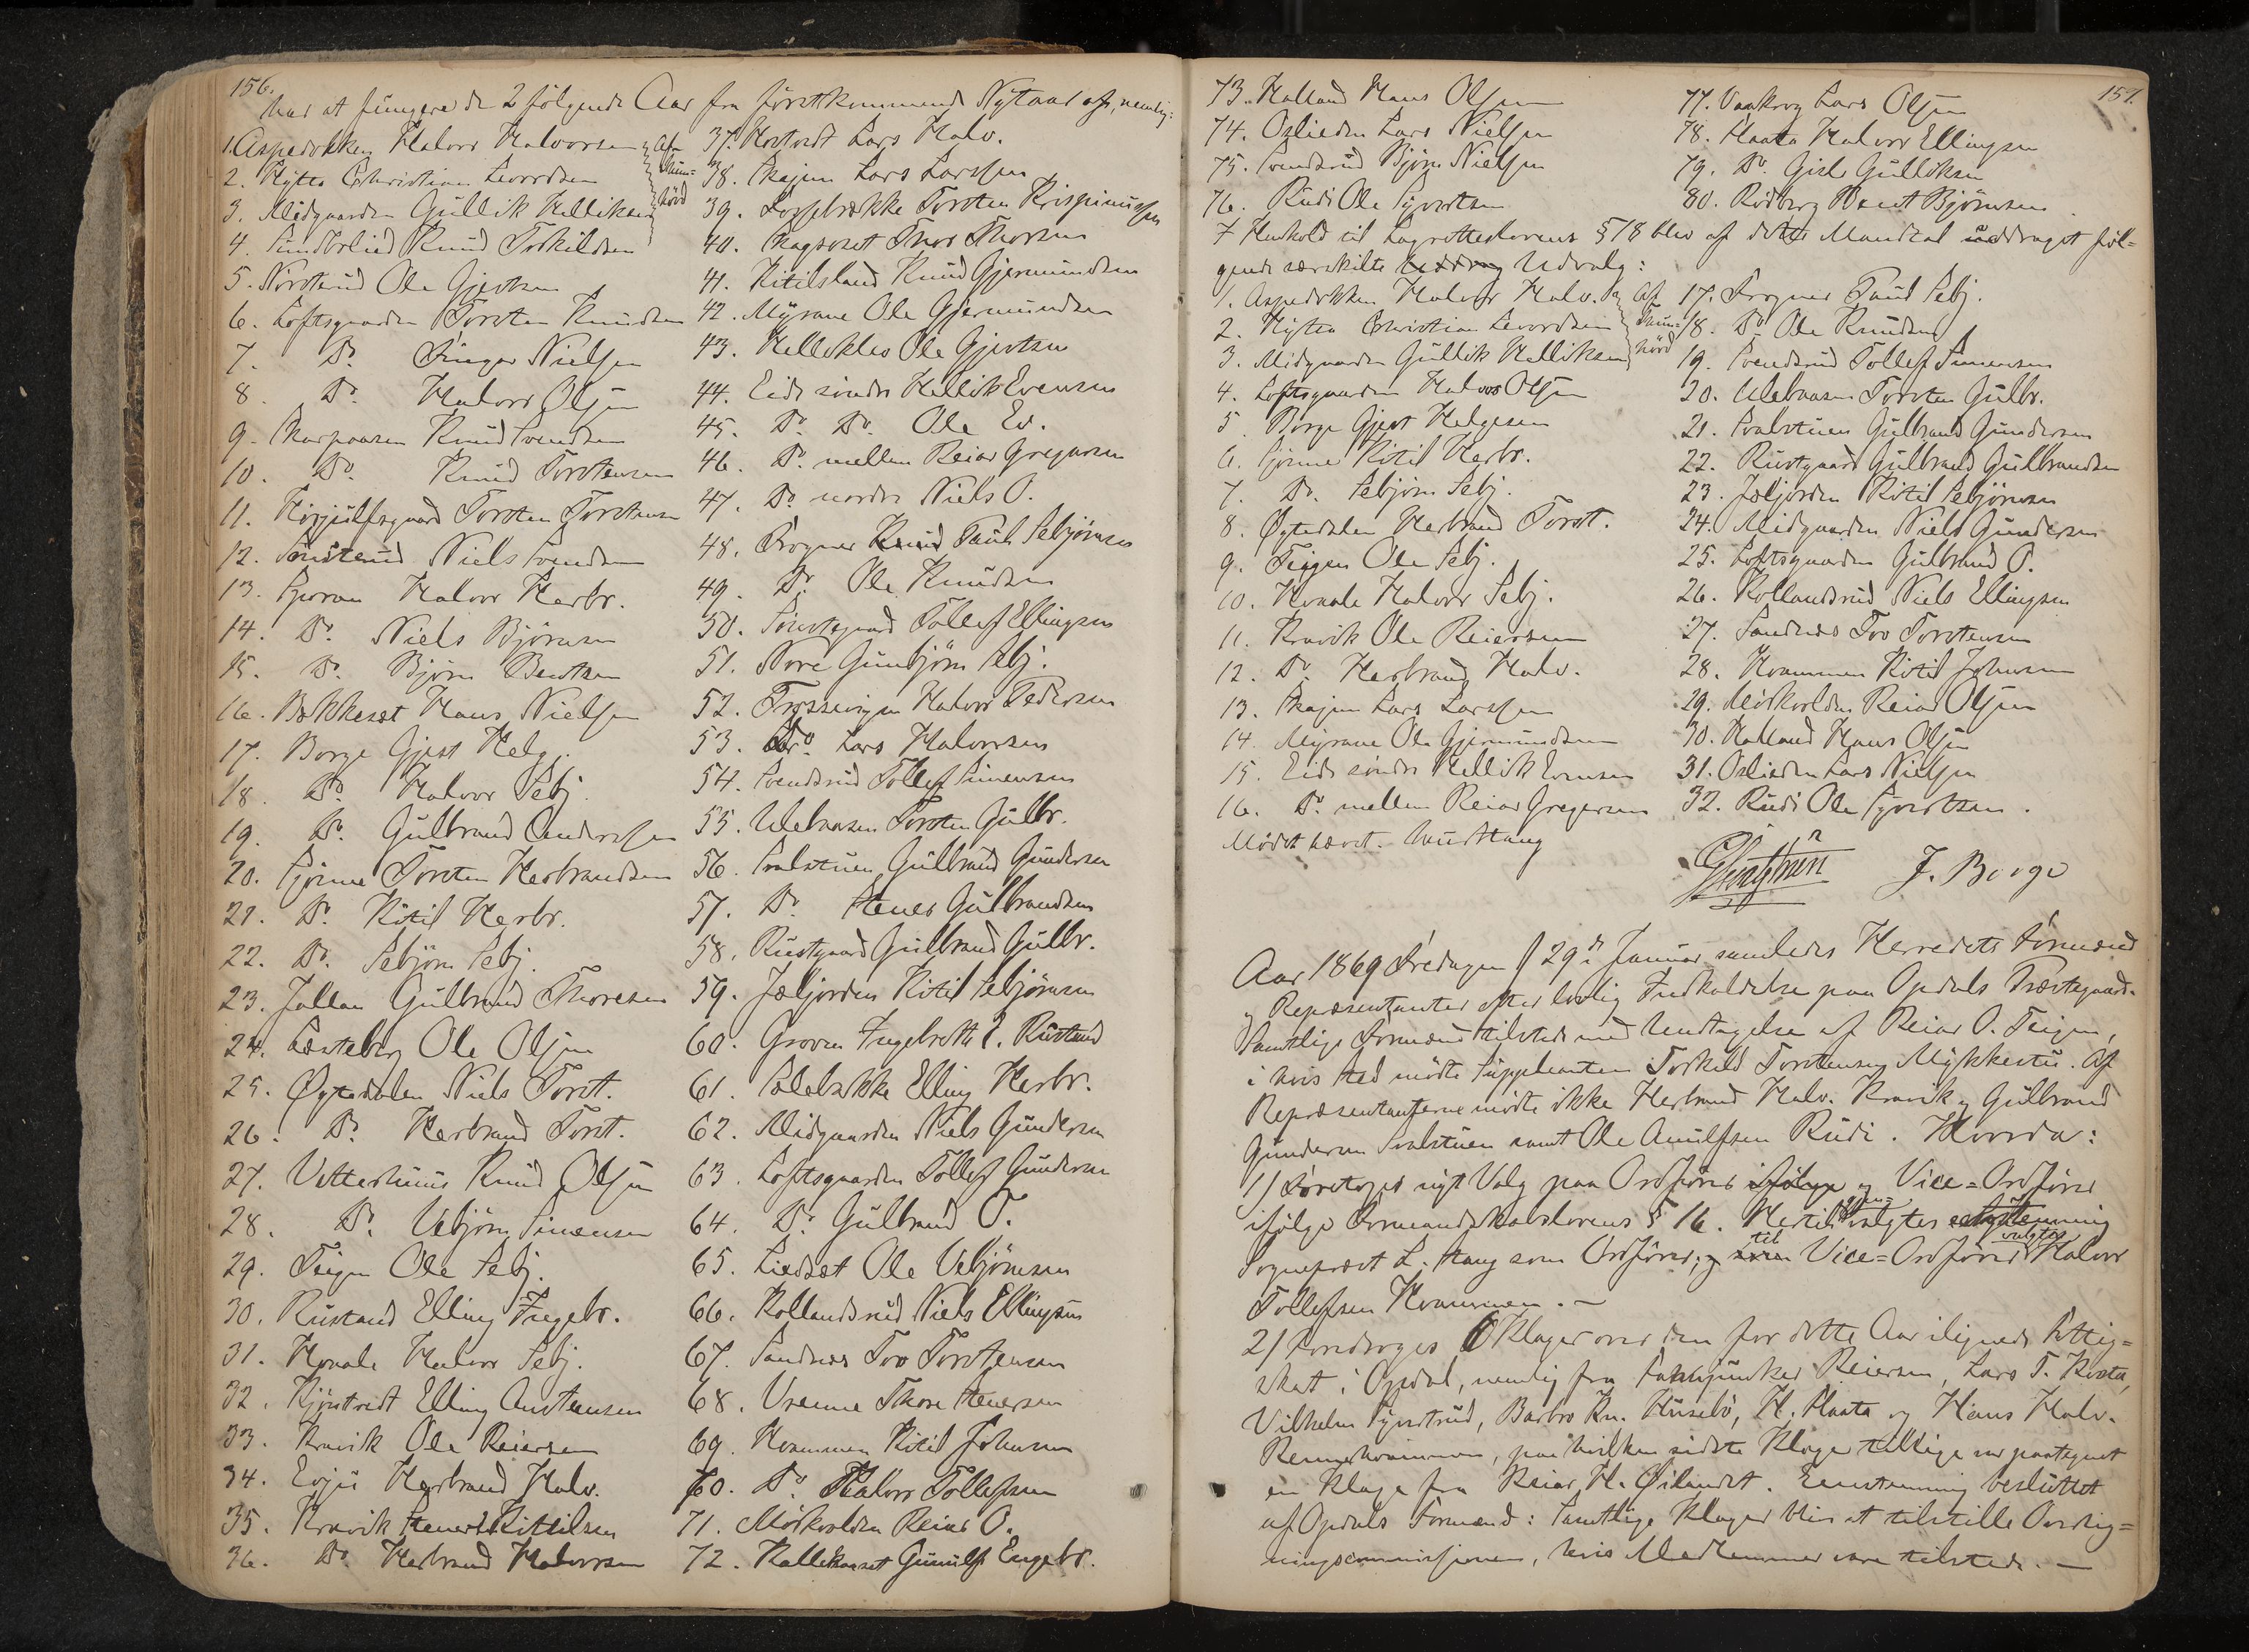 156.
har at fungere de 2 følgende Aar fra førstkommende Nytaar af, nemlig:
1. Aspedokken Halvor Halvorsen
2. Hytta Christian Levordsen
3. Midgaarden Gullik Helliksen
af
Num=
hörd
4. Sundbølied Knud Torkildsen
5. Nørsterud Ole Gjertsen
6. Loftsgaarden Torsten Knudsen
7. Do. Finger Nielsen
8. Do. Halvor Olsen
9. Skarpaasen Knud Svendsen
10. Do. Knud Torstensen
11. Herjulfsgaard Torsten Torstensen
12. Smisterud Niels Svendsen
13. Gvoran Halvor Herbr.
14. Do. Niels Bjørnsen
15. Do. Bjørn Bentsen
16. Bækkesæt Hans Nielsen
17. Borge Gjest Helg.
18. Do. Halvor Sebj.
19. Do. Gulbrand Anderssen
20. Sjønne Torsten Herbrandsen
21. Do. Kittil Herbr.
22. Do. Sebjørn Sebj.
23. Jallan Gulbrand Thoresen
24. Læsteberg Ole Olsen
25. Øytedalen Niels Torst.
26. Do. Herbrand Torst.
27. Vetterhuus Knud Olsen
28. Do. Vebjørn Simensen
29. Teigen Ole Sebj.
30. Rustand Elling Ingebr.
31. Hvaale Halvor Sebj.
32. Kjøntvedt Elling Austeensen
33. Kravik Ole Reiersen
34. Evju Herbrand Halv.
35. Kravik Stener Kittilsen
36. Do. Herbrand Halvorsen
37. Hostvedt Lars Halv.
38. Skajem Lars Larssen
39. Loppebrække Torsten Krispinussen
40. Skagsoset Thor Thorsen
41. Kitilsland Knud Gjermundsen
42. Myrane Ole Gjermundsen
43. Helleklev Ole Gjertsen
44. Eide søndre Hellik Evensen
45. Do. Do. Ole Ev.
46. Do. mellem Reiar Gregersen
47. Do. nordre Niels O.
48. Frogner Knud Paul Sebjørnsen
49. Do. Ole Knudsen
50. Sønstegaard Tollef Ellingsen
51. Nore Gunbjørn Sebj.
52. Frøssvigen Halvor Pedersen
53. Do. Lars Halvorsen
54. Svendsrud Tollef Simensen
55. Ulebaasen Torsten Gulbr.
56. Svalstuen Gulbrand Gundersen
57. Do. Stener Gulbrandsen
58. Rustgaard Gulbrand Gulbr.
59. Jøljorden Kitil Sebjørnsen
60. Groven Ingebrett E. Rustand
61. Sølebække Elling Herbr.
62. Midgaarden Niels Gundersen
63. Loftsgaarden Tollef Gundersen
64. Do. Gulbrand T.
65. Liedsæt Ole Vebjørnsen
66. Kollandsrud Niels Ellingsen
67. Sandnes Tov Torstensen
68. Vrenne Thore Stenersen
69. Hvammen Kitil Johnsen
70. Do. Halvor Tollefsen
71. Mørkvolden Reiar O.
72. Kallekaaset Gunulf Engebr.
157.
73. Halland Hans Olsen
74. Oslieden Lars Nielsen
75. Svendsrud Bjørn Nielsen
76. Rudi Ole Syvertsen
77. Vaakrog Lars Olsen
78. Haata Halvor Ellingsen
79. Do. Gisle Gulliksen
80. Rødberg Bent Bjørnsen
I Henhold til Lagrettelovens § 18 blev af dette Mandtal uddraget føl=
gende særskilte Uddrag Udvalg:
1. Aspedokken Halvor Halv.
2. Hytta Christian Levordsen
3. Midgaarden Gullik Helliksen
af
Num=
hörd
4. Loftsgaarden Halvor Olsen
5. Borge Gjest Helgesen
6. Sjønne Kitil Herbr.
7. Do. Sebjørn Sebj.
8. Øytedalen Herbrand Torst.
9. Teigen Ole Sebj.
10. Hvaale Halvor Sebj.
11. Kravik Ole Reiersen
12. Do. Herbrand Halv.
13. Skajem Lars Larssen
14. Myrane Ole Gjermundsen
15. Eide søndre Hellik Evensen
16. Do. mellem Reiar Gregersen
17. Frogner Paul Sebj.
18. Do. Ole Knudsen
19. Svendsrud Tollef Simensen
20. Ulebaasen Torsten Gulbr.
21. Svalstuen Gulbrand Gundersen
22. Rustgaard Gulbrand Gulbrandsen
23. Jøljorden Kitil Sebjørnsen
24. Midgaarden Niels Gundersen
25. Loftsgaarden Gulbrand T.
26. Kollandsrud Niels Ellingsen
27. Sandnes Tov Torstensen
28. Hvammen Kitil Johnsen
29. Mørkvolden Reiar Olsen
30. Halland Hans Olsen
31. Oslieden Lars Nielsen
32. Rudi Ole Syvertsen.
Mødet hævet. Laur. Stang
J. Borge
Aar 1869 Fredagen d 29de Januar samledes Herredets Formænd
og Repræsentanter efter lovlig Indkaldelse paa Opdals Præstegaard.
Samtlige Formænd tilstede med Undtagelse af Reiar O. Teigen,
i hvis Sted mødte Suppleanten Torkild Torstensen Mykkestu. Af
Repræsentanterne mødte ikke Herbrand Halv. Kravik og Gulbrand
Gundersen Svalstuen samt Ole Anulfsen Rudi. Hvorda:
1/ Foretoges nyt Valg paa Ordfører ifølge og Vice=Ordfører
ifølge Formandskabslovens § 16. Hertil gjen= valgtes eenstemmig
Sognepræst L. Stang som Ordfører, og som til Vice=Ordfører valgtes Halvor
Tollefsen Hvammen. —
2/ Foredroges 6 Klager over den for dette Aar ilignede Fattig=
skat i Opdal, nemlig fra Fanejunker Reiersen, Lars T. Kosta,
Vilhelm Synstrud, Barbro Kn. Husebö, H. Haata og Hans Halv.
Rennehvammen, paa hvilken sidste Klage tillige var paategnet
en Klage fra Reiar H. Øilandet. Eenstemmig besluttet
af Opdals Formænd: Samtlige Klager blive at tilstille Overlig=
ningscommissionen, hvis Medlemmer vare tilstede. —